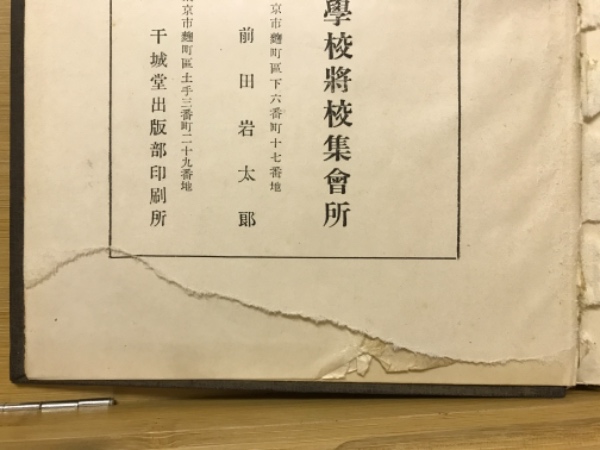 學校將校集會所
京市麴町區下六番町十七番地
前田岩太郎
京市麴町區土手三番町二十九番地
干城堂出版部印刷所